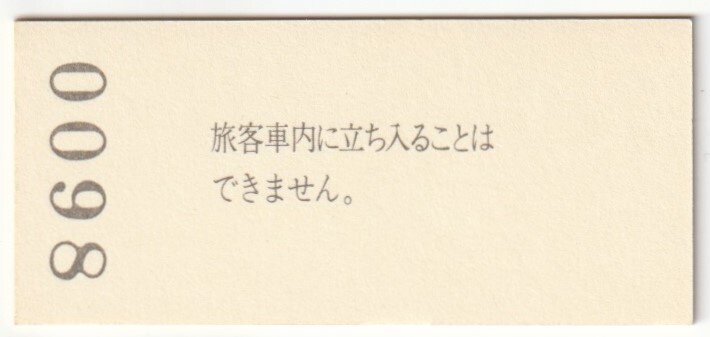 8600
旅客車内に立ち入ることは
できません。